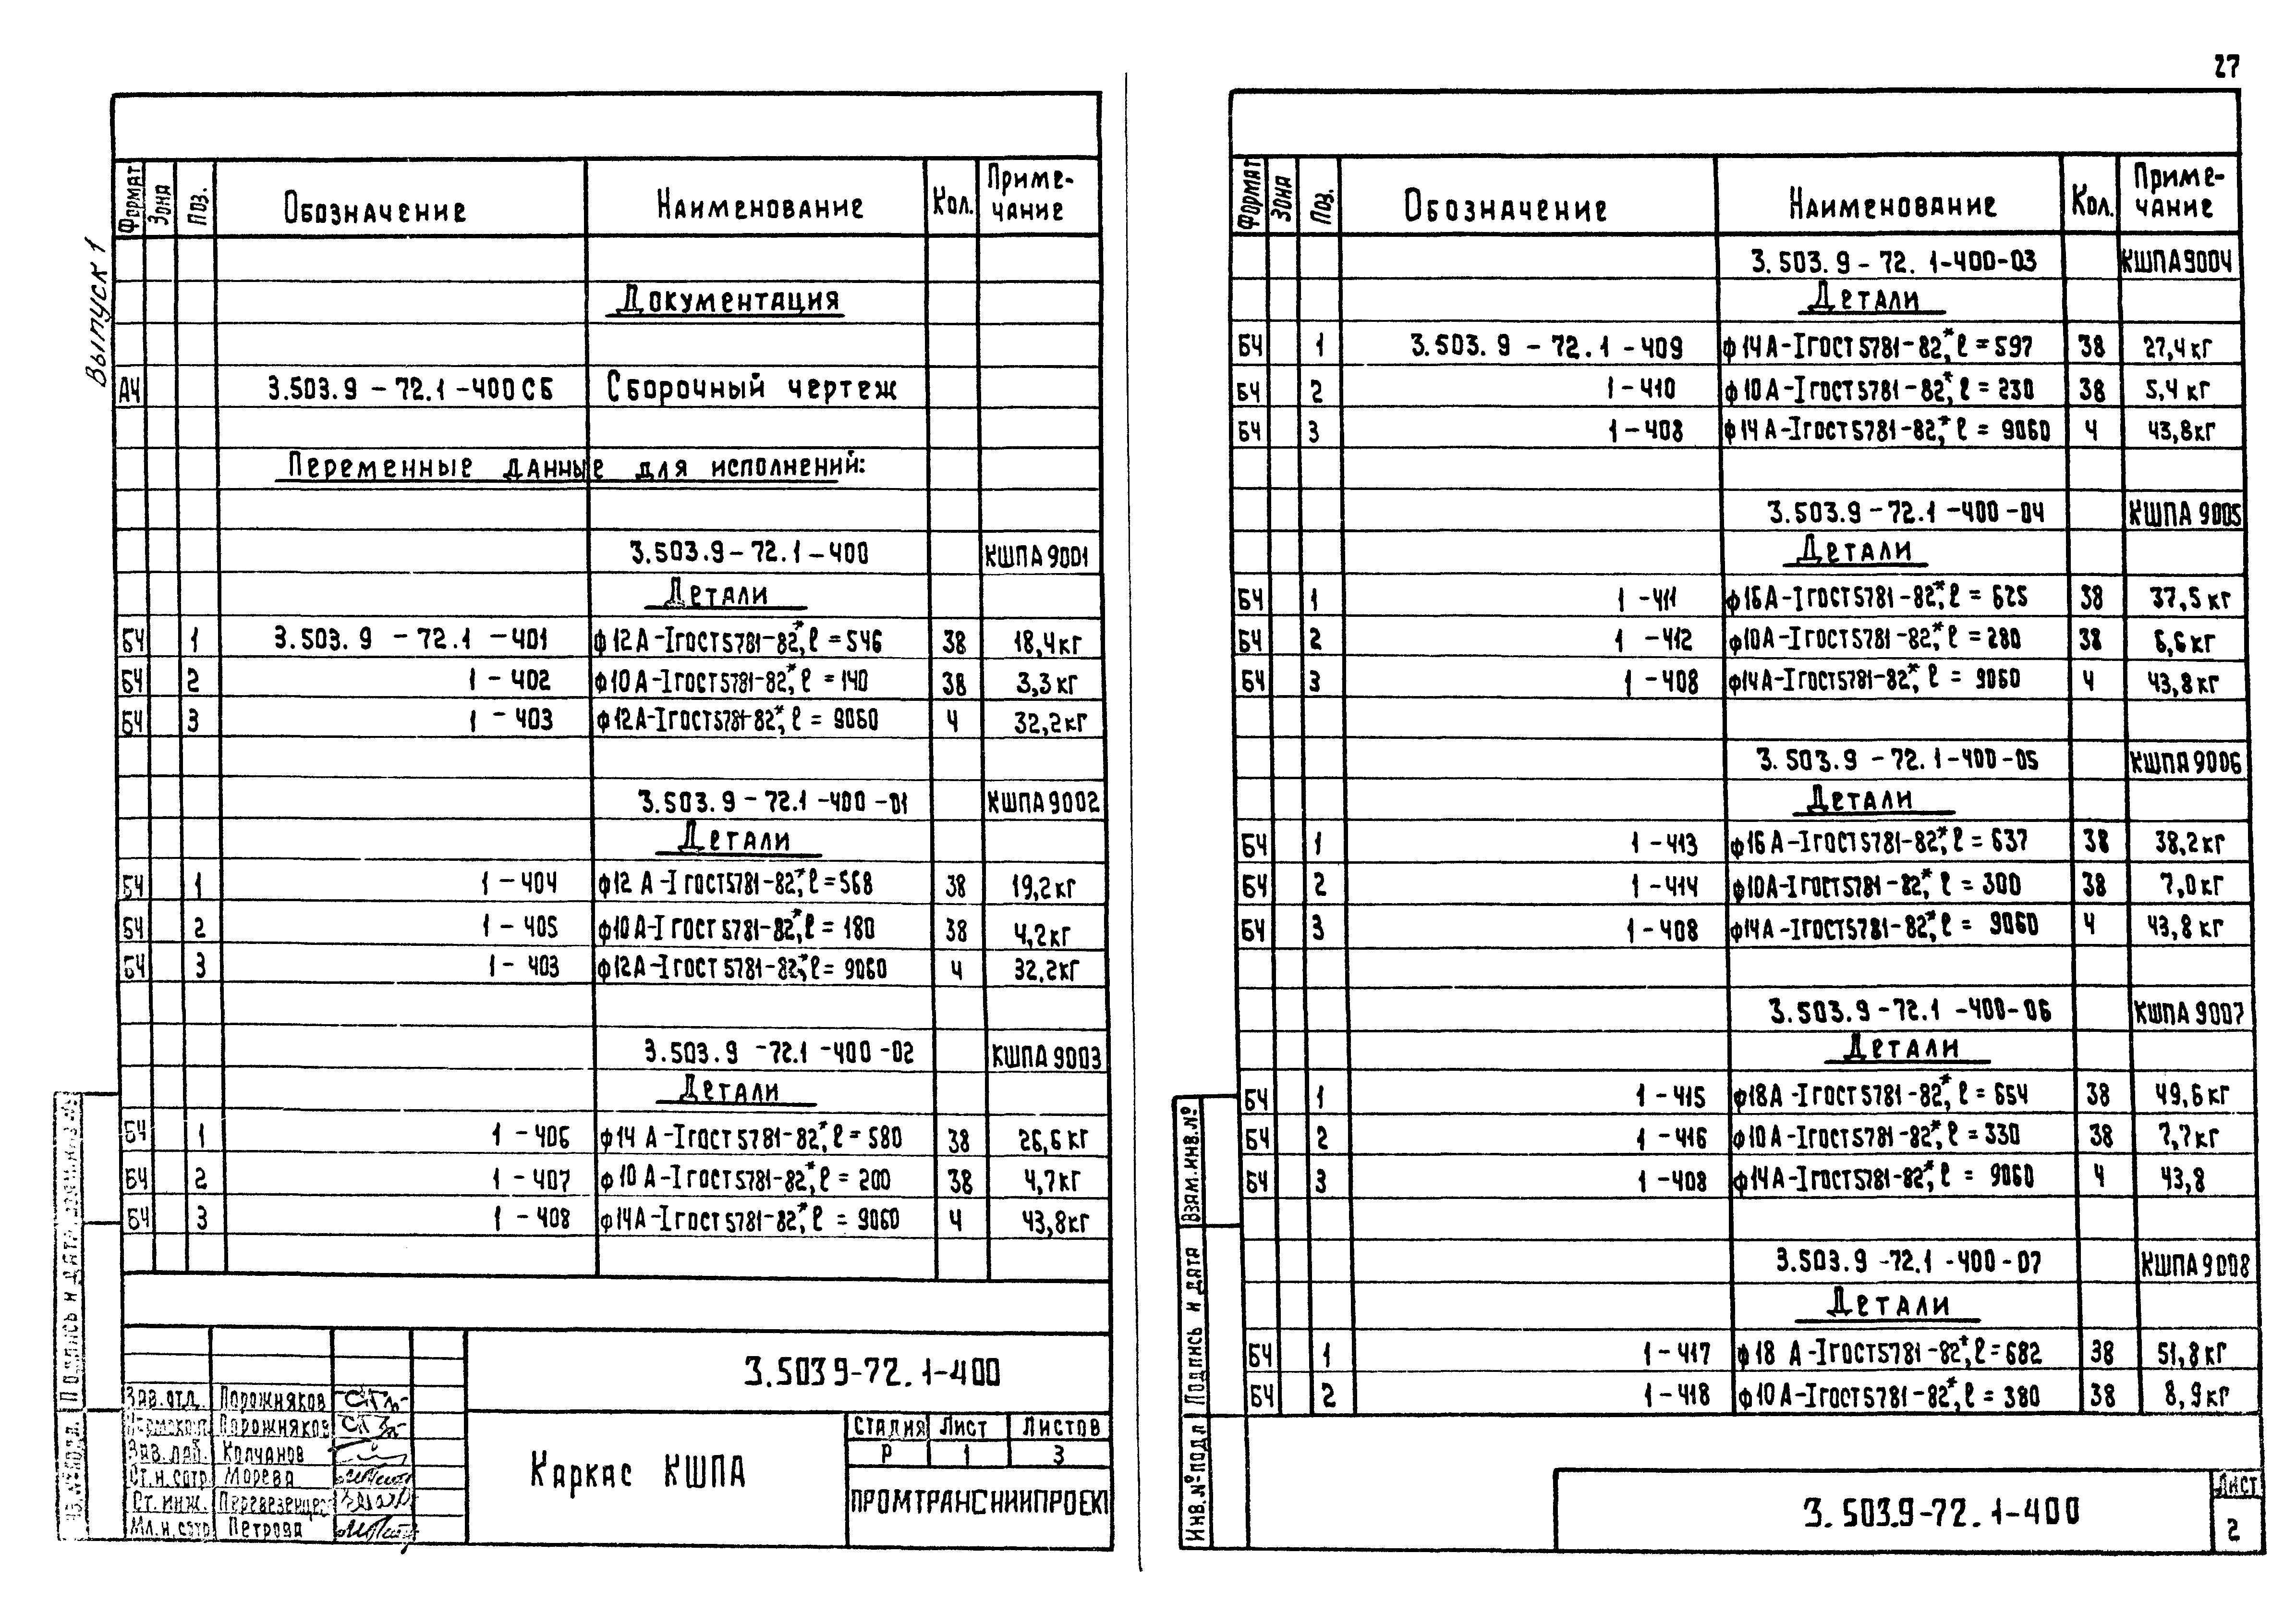 27
Выпуск 1
Формат Зона Поз. Обозначение Наименование Кол. Приме-
чание
Документация
А4 3.503.9-72.1-400СБ Сборочный чертеж
Переменные данные для исполнений:
3.503.9-72.1-400 КШПА9001
Детали
БЧ 1 3.503.9-72.1-401 ф12А-I ГОСТ5781-82*, ℓ=546 38 18,4кг
БЧ 2 1-402 ф10А-I ГОСТ5781-82*, ℓ=140 38 3,3кг
БЧ 3 1-403 ф12А-I ГОСТ5781-82*, ℓ=9060 4 32,2кг
3.503.9-72.1-400-01 КШПА9002
Детали
БЧ 1 1-404 ф12А-I ГОСТ5781-82*, ℓ=568 38 19,2кг
БЧ 2 1-405 ф10А-I ГОСТ5781-82*, ℓ=180 38 4,2кг
БЧ 3 1-403 ф12А-I ГОСТ5781-82*, ℓ=9060 4 32,2кг
3.503.9-72.1-400-02 КШПА9003
Детали
БЧ 1 1-406 ф14А-I ГОСТ5781-82*, ℓ=580 38 26,6кг
БЧ 2 1-407 ф10А-I ГОСТ5781-82*, ℓ=200 38 4,7кг
БЧ 3 1-408 ф14А-I ГОСТ5781-82*, ℓ=9060 4 43,8кг
Подпись и дата
3.503 9-72.1-400
Зав.отд. Порожняков
Порожняков
Зав.лаб. Колчанов
Ст.н.сотр Морева
Ст.инж. Перевезенцев
Мл.н.сотр Петрова
Каркас КШПА
Стадия Лист Листов
Р 1 3
ПРОМТРАНСНИИПРОЕКТ
Формат Зона Поз. Обозначение Наименование Кол. Приме-
чание
3.503.9-72.1-400-03 КШПА9004
Детали
БЧ 1 3.503.9-72.1-409 ф14А-I ГОСТ5781-82*, ℓ=597 38 27,4кг
БЧ 2 1-410 ф10А-I ГОСТ5781-82*, ℓ=230 38 5,4кг
БЧ 3 1-408 ф14А-I ГОСТ5781-82*, ℓ=9060 4 43,8кг
3.503.9-72.1-400-04 КШПА9005
Детали
БЧ 1 1-411 ф16А-I ГОСТ5781-82*, ℓ=625 38 37,5кг
БЧ 2 1-412 ф10А-I ГОСТ5781-82*, ℓ=280 38 6,6кг
БЧ 3 1-408 ф14А-I ГОСТ5781-82*, ℓ=9060 4 43,8кг
3.503.9-72.1-400-05 КШПА9006
Детали
БЧ 1 1-413 ф16А-I ГОСТ5781-82*, ℓ=637 38 38,2кг
БЧ 2 1-414 ф10А-I ГОСТ5781-82*, ℓ=300 38 7,0кг
БЧ 3 1-408 ф14А-I ГОСТ5781-82*, ℓ=9060 4 43,8кг
3.503.9-72.1-400-06 КШПА9007
Детали
БЧ 1 1-415 ф18А-I ГОСТ5781-82*, ℓ=654 38 49,6кг
БЧ 2 1-416 ф10А-I ГОСТ5781-82*, ℓ=330 38 7,7кг
БЧ 3 1-408 ф14А-I ГОСТ5781-82*, ℓ=9060 4 43,8
3.503.9-72.1-400-07 КШПА9008
Детали
БЧ 1 1-417 ф18А-I ГОСТ5781-82*, ℓ=682 38 51,8кг
БЧ 2 1-418 ф10А-I ГОСТ5781-82*, ℓ=380 38 8,9кг
Взам.инв.№
Подпись и дата
Инв.№подл
3.503.9-72.1-400
Лист
2